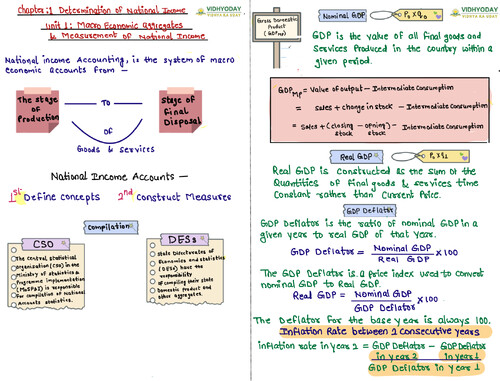 Chapter:1 Determination of National Income
Unit 1: Macro Economic Aggregates
& Measurement of National Income
VIDHYODAY
VIDHYA KA UDAY
National income Accounting, is the system of macro
economic accounts from —
The stage
of
Production
TO
Stage of
Final
Disposal
OF
Goods & services
National Income Accounts —
1st Define concepts 2nd Construct Measures
Compilation
CSO
The central statistical
Organisation (CSO) in the
Ministry of statistics &
Programme implementation
(MoSPI) is responsible
for compilation of National
Accounts statistics.
DESs
State Directorates of
Economics and statistics
(DESs) have the
responsibility
of compiling their state
Domestic product and
other aggregates.
VIDHYODAY
VIDHYA KA UDAY
Gross Domestic
Product
Nominal GDP
GDP is the value of all final goods and
Services Produced in the country within a
given period.
GDPMP = Value of output – Intermediate Consumption
= sales + change in stock – Intermediate Consumption
= Sales + (closing stock – opning stock) – Intermediate Consumption
Real GDP
Real GDP is Constructed as the sum of the
Quantities of Final goods & services time
Constant rather than Current Price.
GDP Deflator
GDP Deflator is the ratio of nominal GDP in a
given year to real GDP of that year.
GDP Deflator = Nominal GDP / Real GDP X100
The GDP Deflator is a price index used to convert
nominal GDP to Real GDP.
Real GDP = Nominal GDP / GDP Deflator X100
The Deflator for the base year is always 100.
Inflation Rate between 2 Consecutive years
inflation rate in year 2 = GDP Deflator in year 2 – GDP Deflator in year 1 / GDP Deflator in year 1